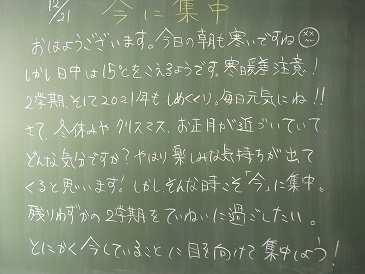 12/21 今に集中
おはようございます。今日の朝も寒いですね
しかし日中は15℃をこえるようです。寒暖差注意!
2学期そして2021年もしめくくり。毎日元気にね!!
さて、冬休みやクリスマス、お正月が近づいていて
どんな気分ですか?やはり楽しみな気持ちが出て
くると思います!しかし、そんな時こそ「今」に集中。
残りわずかの2学期をていねいに過ごしたい。
とにかく今していることに目を向けて集中しよう!